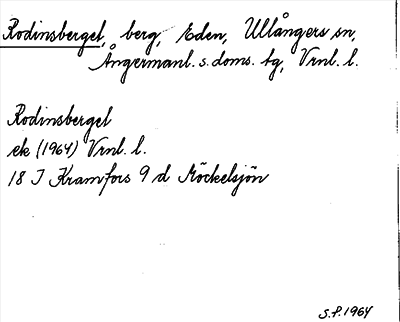 Rodinsberget, berg, Eden, Ullångers sn,
Ångermanl. s. doms. tg, Vrnl. l.
Rodinsberget
ek (1964) Vrnl. l.
18 I Kramfors 9 d Möckelsjön
S.P. 1964